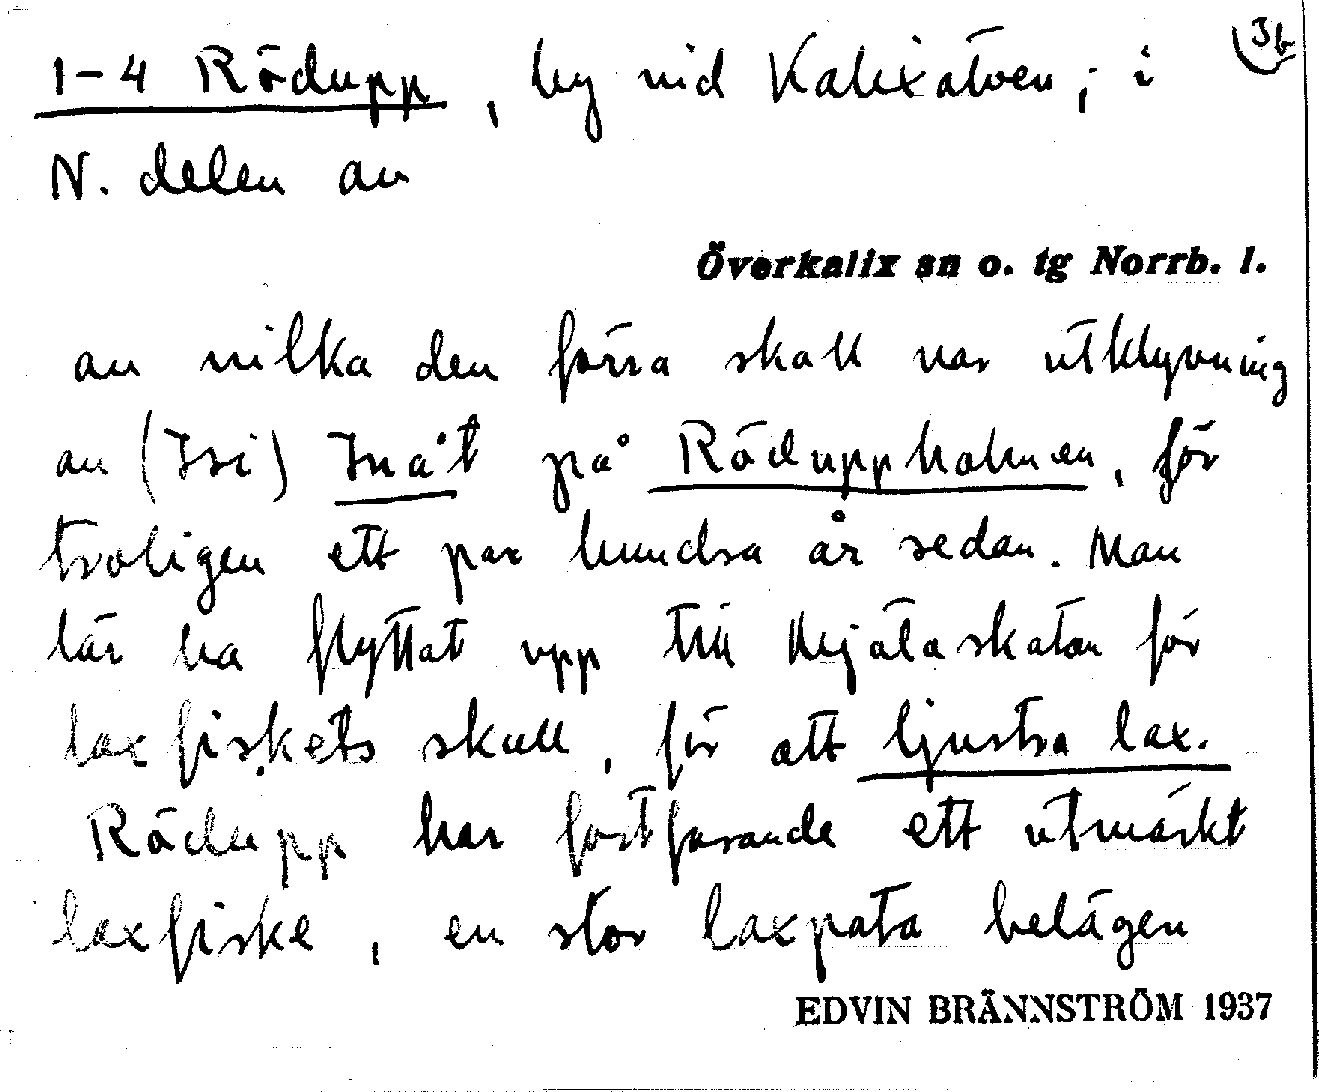 3b
1-4 Rödupp, by vid Kalixälven, i
N. delen av
Överkalix sn o. tg Norrb. l.
av vilka den förra skall var utklyvning
av (Isi) Inåt på Röduppholmen, för
troligen ett par hundra år sedan. Man
lär ha flyttat upp till skatan för
laxfiskets skull, för att ljustra lax.
Rödupp har fortfarande ett utmärkt
laxfiske, en stor laxpata belägen
EDVIN BRÄNNSTRÖM 1937